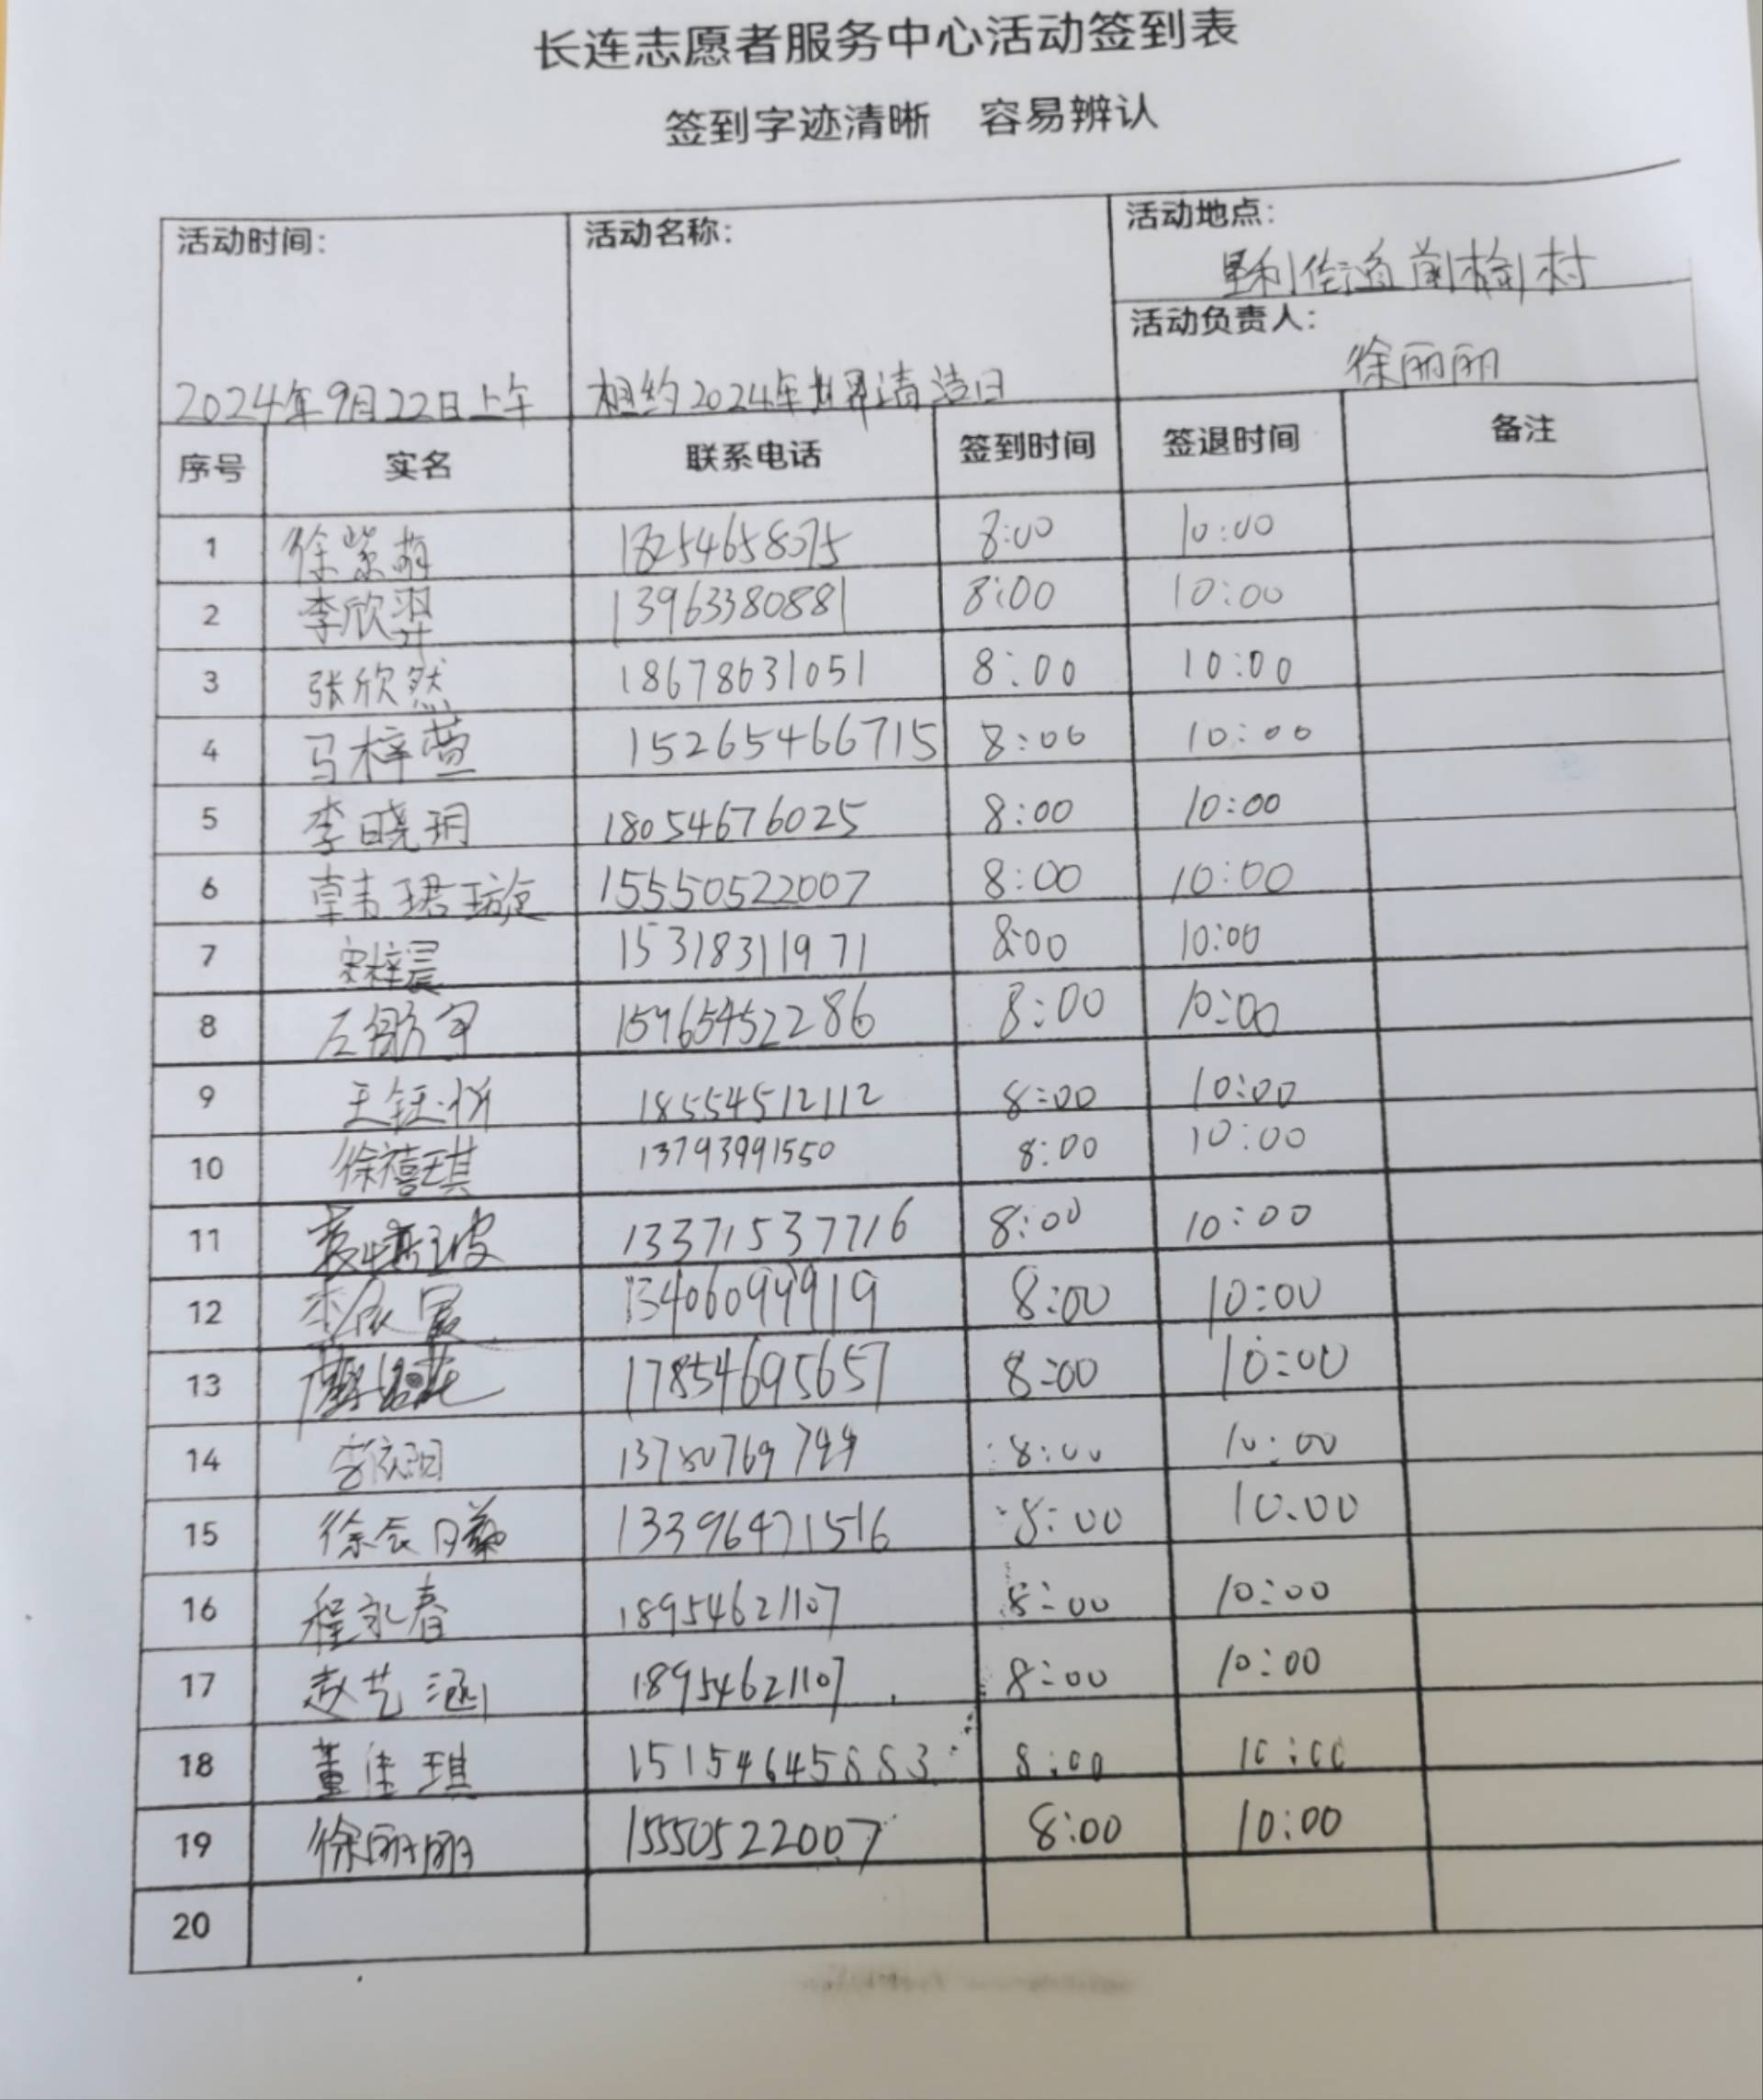 长连志愿者服务中心活动签到表
签到字迹清晰 容易辨认
活动时间: 活动名称: 活动地点:
垦利街道前榆村
活动负责人:
徐丽丽
2024年9月22日上午 相约2024年世界清洁日
序号 实名 联系电话 签到时间 签退时间 备注
1 徐紫萌 18254658375 8:00 10:00
2 李欣羿 13963380881 8:00 10:00
3 张欣然 18678631051 8:00 10:00
4 马梓萱 15265466715 8:00 10:00
5 李晓玥 18054676025 8:00 10:00
6 韩珺璇 15550522007 8:00 10:00
7 宋梓晨 15318311971 8:00 10:00
8 左航宇 15965452286 8:00 10:00
9 王钰忻 18554512112 8:00 10:00
10 徐禧琪 13793991550 8:00 10:00
11 13371537716 8:00 10:00
12 13406099919 8:00 10:00
13 17854695657 8:00 10:00
14 8:00 10:00
15 徐 13396471516 8:00 10.00
16 程永春 18954621107 8:00 10:00
17 赵艺涵 18954621107 8:00 10:00
18 董佳琪 15154645883 8:00 10:00
19 徐丽丽 15550522007 8:00 10:00
20